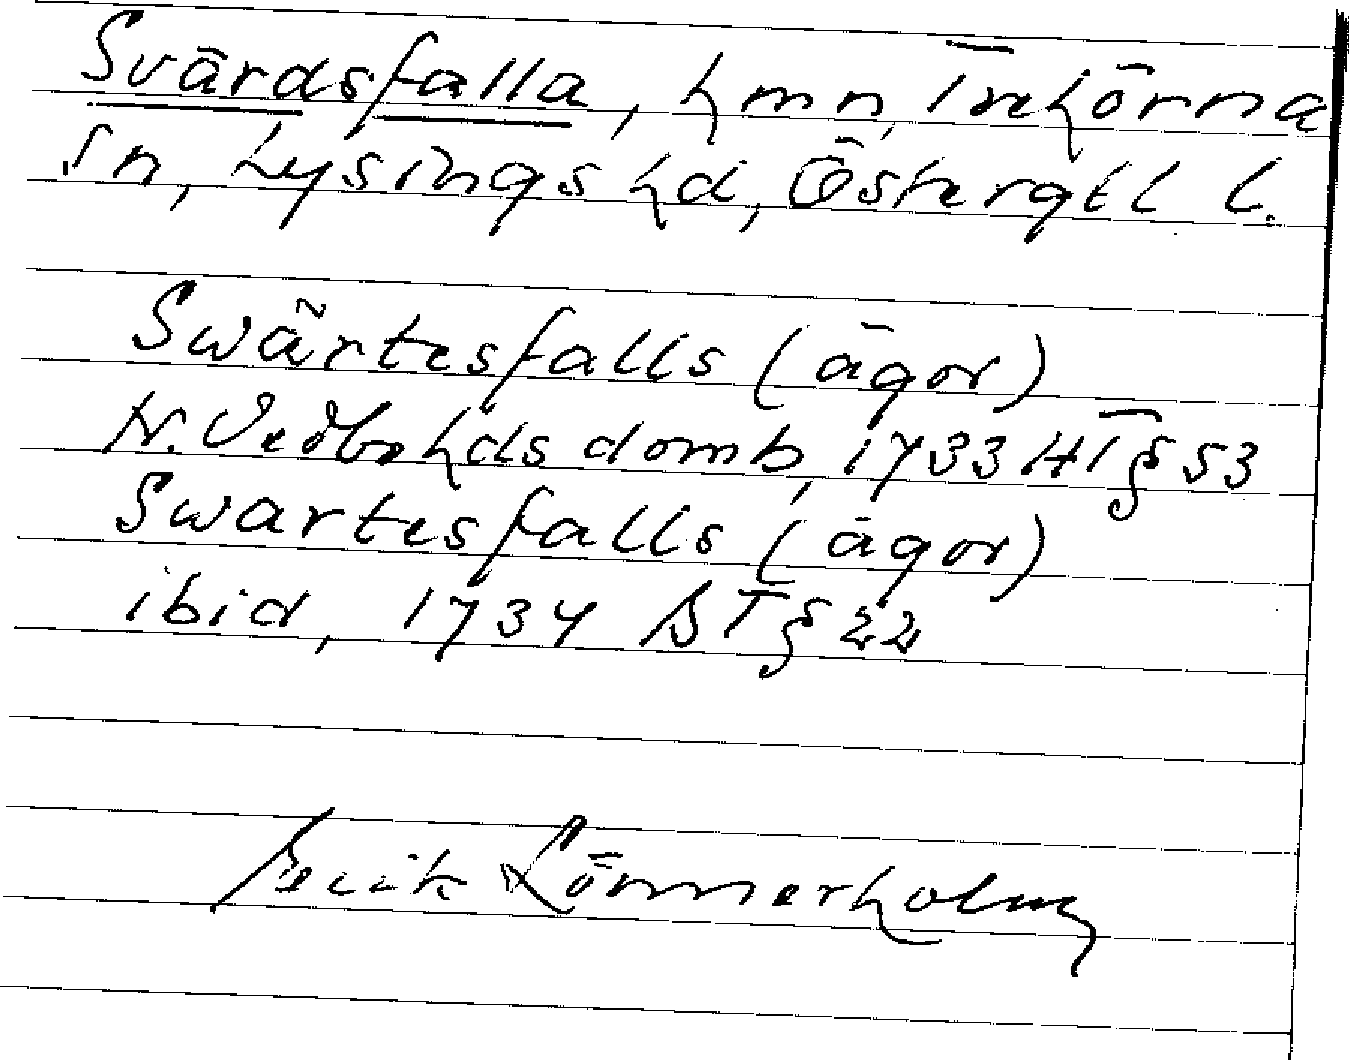 Svärdsfalla, hmn, Trehörna
sn, Lysings hd, Östergtl l.
Swärtesfalls (ägor)
N. Vedbo hds domb, 1733 HT § 53
Swartesfalls (ägor)
ibid, 1734 ST § 22
Lönnerholm